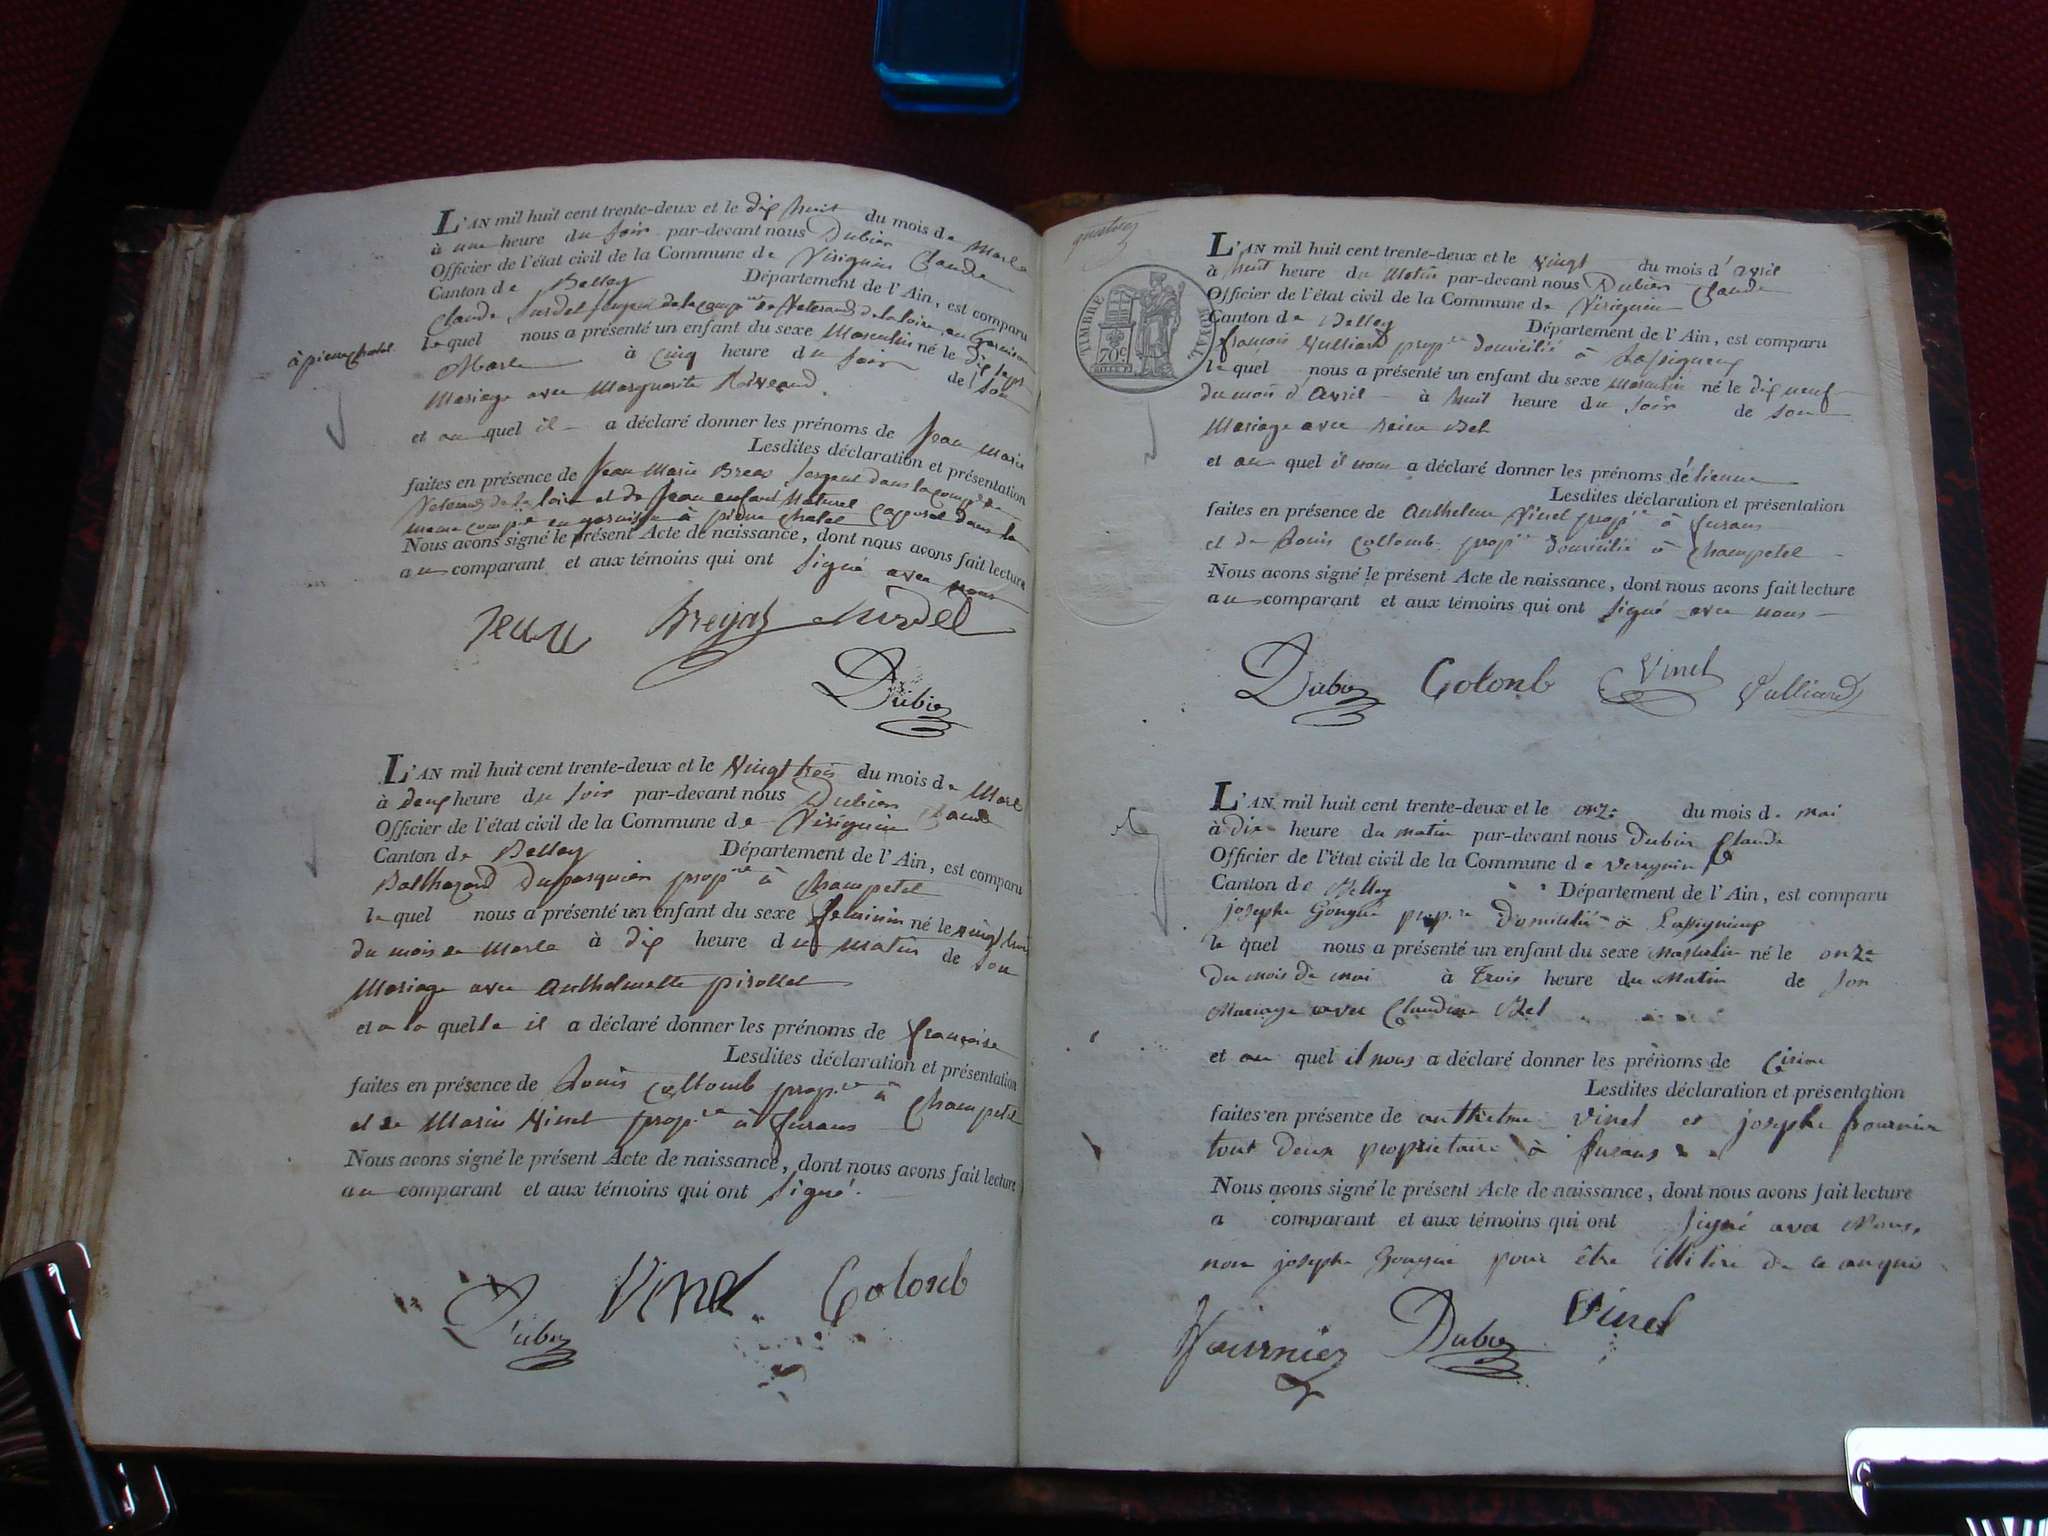 L'AN mil huit cent trente-deux et le dix huit du mois de Mars
à une heure du soir par-devant nous Dubien Claude
Officier de l'état civil de la Commune de Virignin
Canton de Belley Département de l'Ain, est comparu
Claude Surdel de la comp de Veterans de la loire en Garnison
à pierre chatel
lequel nous a présenté un enfant du sexe Masculin né le dix sept
Mars à cinq heure du soir de son
Mariage avec Marguerite
et au quel il a déclaré donner les prénoms de Jean Marie
Lesdites déclaration et présentation
faites en présence de Jean Marie Sergent dans la comp de
Veterans de la loire et de Jean enfant Naturel Caporal dans la
meme comp en garnison à pierre chatel
Nous avons signé le présent Acte de naissance, dont nous avons fait lecture
au comparant et aux témoins qui ont signé avec nous
Jean Surdel
Dubien
L'AN mil huit cent trente-deux et le Vingt trois du mois de Mars
à deux heure du soir par-devant nous Dubien Claude
Officier de l'état civil de la Commune de Virignin
Canton de Belley Département de l'Ain, est comparu
Balthazard Dupasquier prop.re à champetel
lequel nous a présenté un enfant du sexe feminin né le vingt trois
du mois de Mars à dix heure du matin de son
Mariage avec Anthelmette pirollet
et a la quelle il a déclaré donner les prénoms de françoise
Lesdites déclaration et présentation
faites en présence de Louis Collomb prop.re à Champetel
et de Marin Vinet prop.re à furans
Nous avons signé le présent Acte de naissance, dont nous avons fait lecture
au comparant et aux témoins qui ont signé.
Dubien Vinet Colonb
quatorze
TIMBRE ROYAL
70c
L'AN mil huit cent trente-deux et le vingt du mois d'avril
à huit heure du matin par-devant nous Dubien Claude
Officier de l'état civil de la Commune de Virignin
Canton de Belley Département de l'Ain, est comparu
françois Vulliard prop.re domicilié à Lassignieux
lequel nous a présenté un enfant du sexe masculin né le dix neuf
du mois d'Avril à huit heure du soir de son
Mariage avec Reine Bel
et au quel il nous a déclaré donner les prénoms d'étienne
Lesdites déclaration et présentation
faites en présence de Anthelme Vinet prop.re à furans
et de Louis Collomb prop.re domicilié à Champetel
Nous avons signé le présent Acte de naissance, dont nous avons fait lecture
au comparant et aux témoins qui ont signé avec nous
Dubien Colonb Vinet Vulliard
L'AN mil huit cent trente-deux et le onze du mois de mai
à dix heure du matin par-devant nous Dubien Claude
Officier de l'état civil de la Commune de Virignin
Canton de Belley Département de l'Ain, est comparu
josephe Gouque prop.re Domicilié à Lassignieux
le quel nous a présenté un enfant du sexe Masculin né le onze
Du mois de mai à trois heure du Matin de son
Mariage avec Claudine Bel
et au quel il nous a déclaré donner les prénoms de
Lesdites déclaration et présentation
faites en présence de anthelme Vinet et josephe fournier
tout deux proprietaire à furans
Nous avons signé le présent Acte de naissance, dont nous avons fait lecture
a comparant et aux témoins qui ont signé avec Nous,
non josephe Gouque pour être illitéré de ce anquis
fournier Dubien Vinet